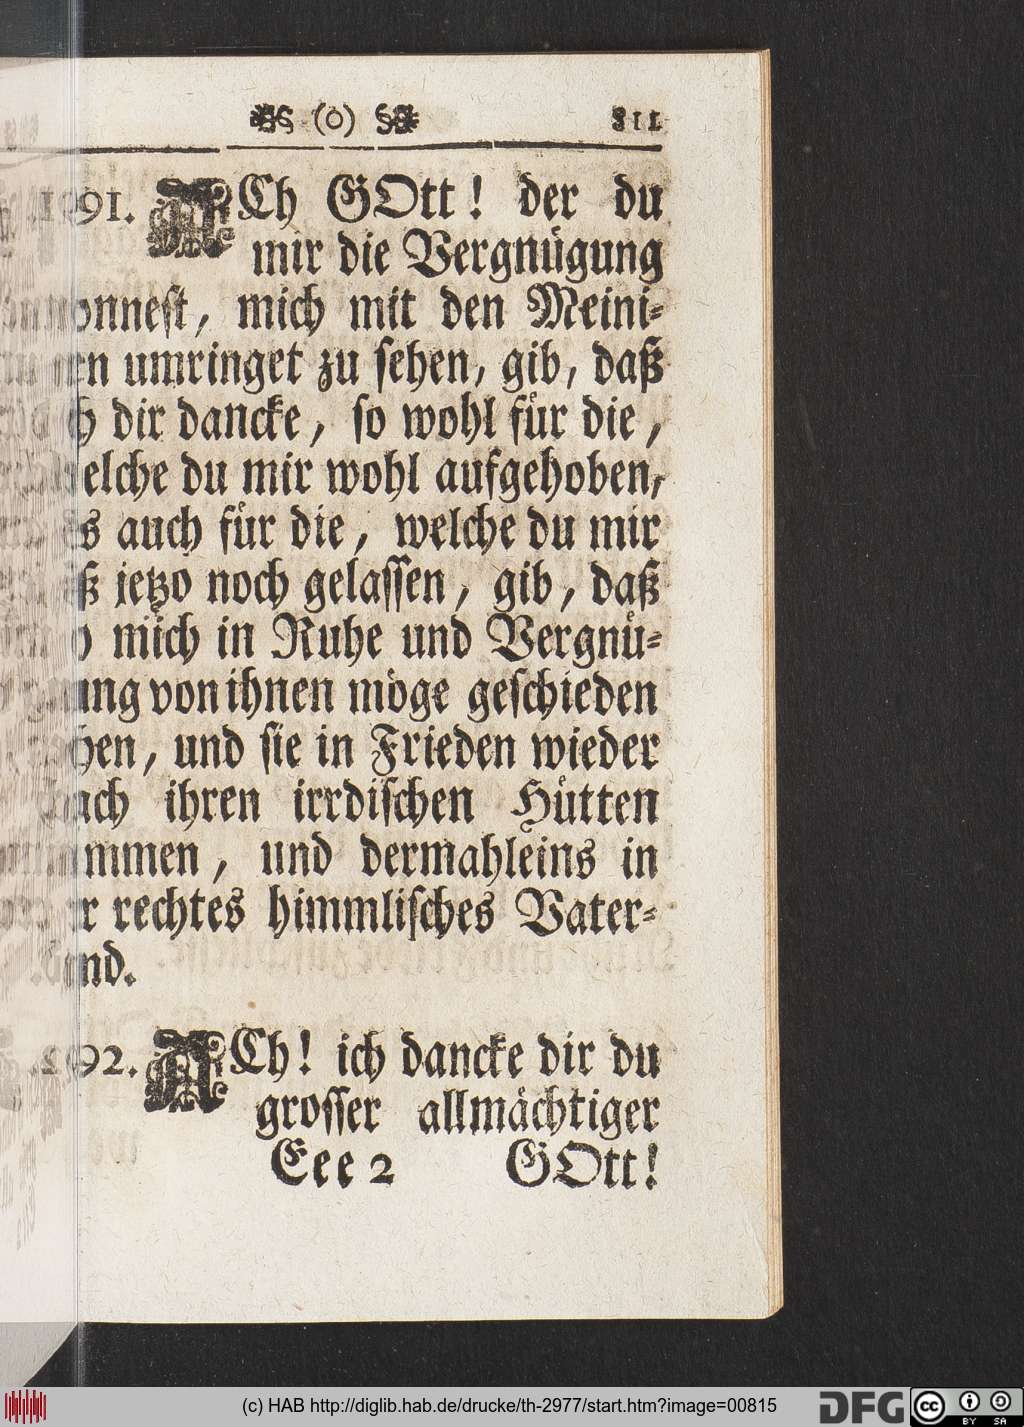 (o) 811
ACh GOtt! der du
mir die Vergnügung
mich mit den Meini-
umringet zu sehen, gib, daß
dir dancke, so wohl für die,
du mir wohl aufgehoben,
auch für die, welche du mir
jetzo noch gelassen, gib, daß
mich in Ruhe und Vergnü-
von ihnen möge geschieden
und sie in Frieden wieder
ihren irrdischen Hütten
und dermahleins in
rechtes himmlisches Vater-
ACh! ich dancke dir du
grosser allmächtiger
Eee 2 GOtt!
(c) HAB http://diglib.hab.de/drucke/th-2977/start.htm?image=00815
DFG
cc BY SA